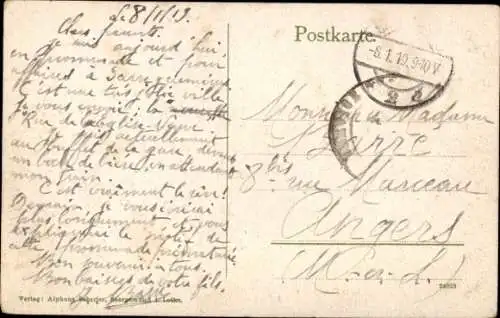 Le 8/1/19.
Chers parents.
Je suis aujourd'hui
en promenade et pour
affaires à Sarreguemines
C'est une très jolie ville
Je vous envoie la
Rue de l'église
Je suis actuellement
au buffet de la gare devant
un bock de bière, en attendant
mon train.
C'est vraiment le rêve!
Demain, je vous écrirai
plus longuement et vous
expliquerai le motif de
cette promenade
Bon souvenir à tous.
Bons baisers de votre fils.
Postkarte.
-8.1.19.9-10V
Monsieur et Madame
8 bis rue Marceau
Angers
(M.-et-L.)
Verlag: Alphons Saargemünd i. Lothr.